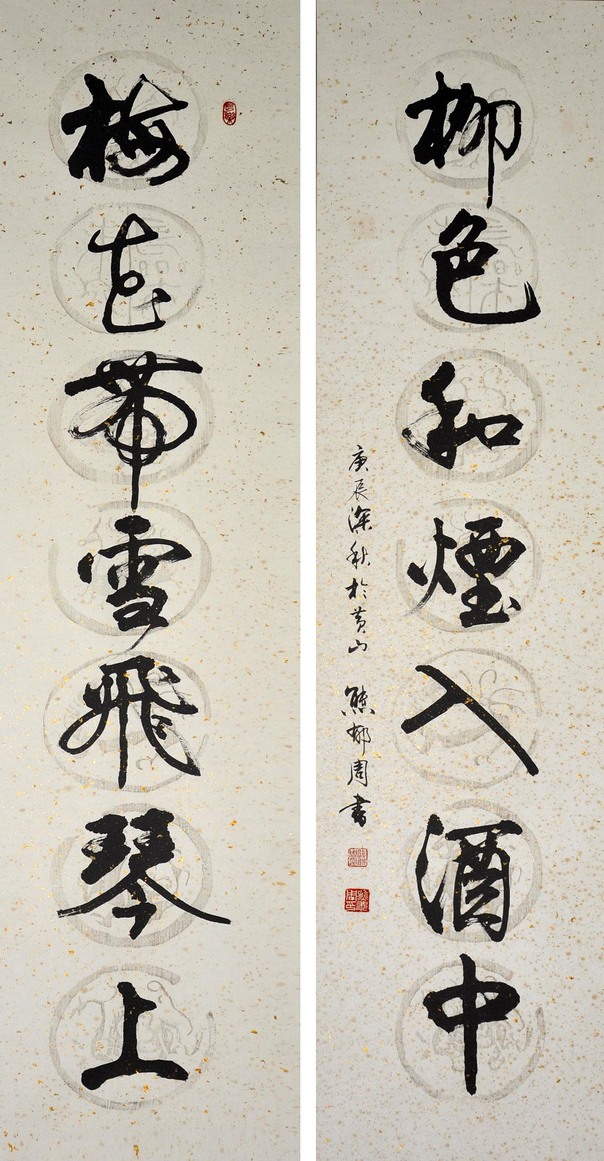 梅花帶雪飛琴上
柳色和煙入酒中
庚辰深秋於黄山 熊郁周書